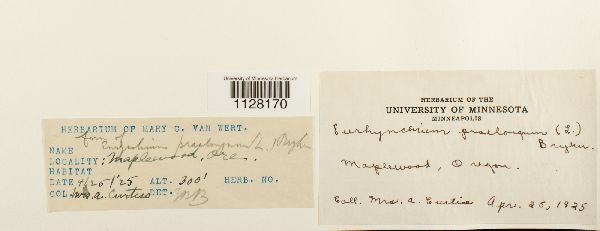 University of Minnesota Herbarium
1128170
HERBARIUM OF MARY C. VAN WERT.
form of
NAME Eurynchium praelongum (L.) Bryhn
LOCALITY: Maplewood, Ore.
HABITAT
DATE 4/25/'25 ALT. 300' HERB. NO.
COL. Mrs. A. Curtiss DET.
HERBARIUM OF THE
UNIVERSITY OF MINNESOTA
MINNEAPOLIS
Eurhynchium praelongum (L.)
Bryhn.
Maplewood, Oregon.
Coll. Mrs. A. Curtis Apr. 25, 1925